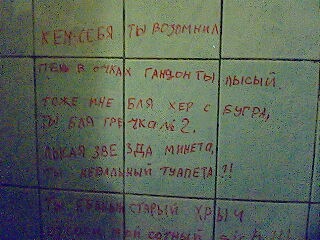 КЕМ СЕБЯ ТЫ ВОЗОМНИЛ
ПЕНЬ В ОЧКАХ ГАНДОН ТЫ ЛЫСЫЙ.
ТОЖЕ МНЕ БЛЯ ХЕР С БУГРА,
ТЫ БЛЯ ГРЕЧКА № 2.
ЛЫСАЯ ЗВЕЗДА МИНЕТА,
ТЫ ТУАЛЕТА!!
ТЫ СТАРЫЙ ХРЫЧ